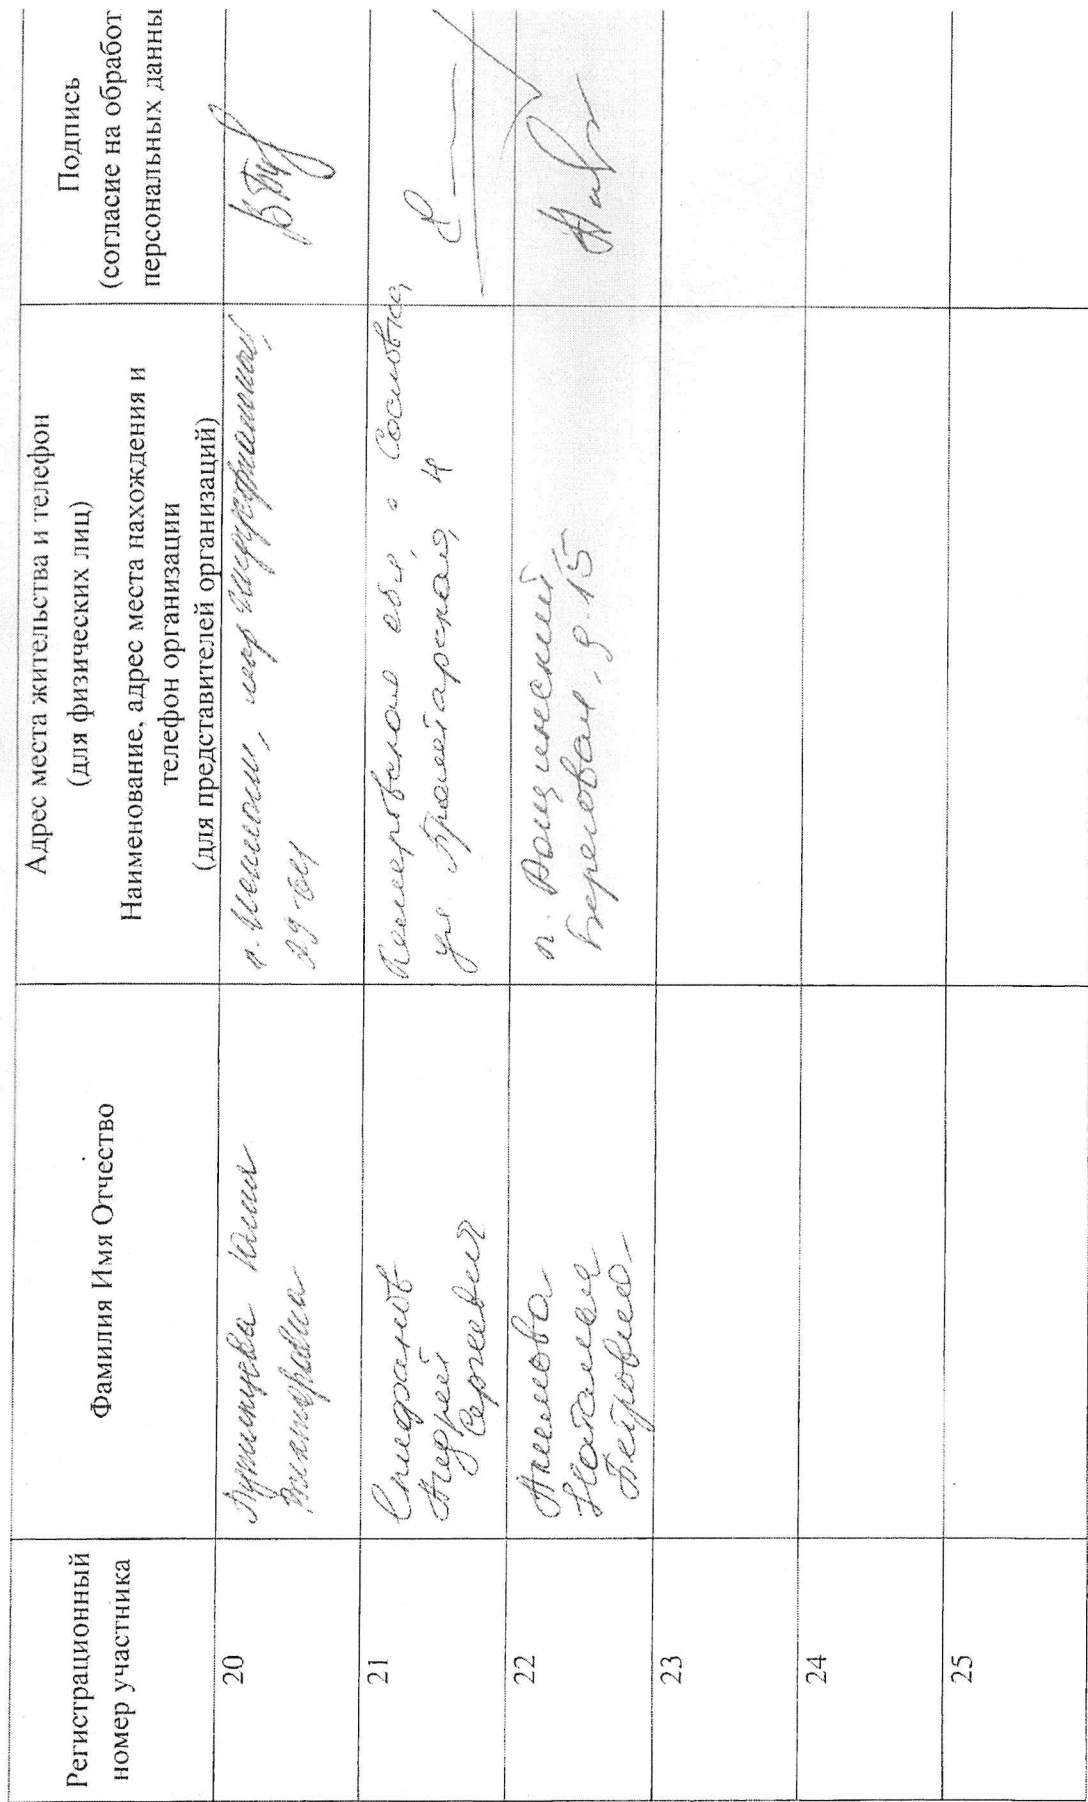 Регистрационный
номер участника
Фамилия Имя Отчество
Адрес места жительства и телефон
(для физических лиц)
Наименование, адрес места нахождения и
телефон организации
(для представителей организаций)
Подпись
(согласие на обработ
персональных данны
20
Юлия
Викторовна
21
Андрей
Сергеевич
Кемеровская обл, с Сосновка
ул. Пролетарская, 4
22
Акимова
Наталья
Петровна
п.
Береговая, д. 15
23
24
25